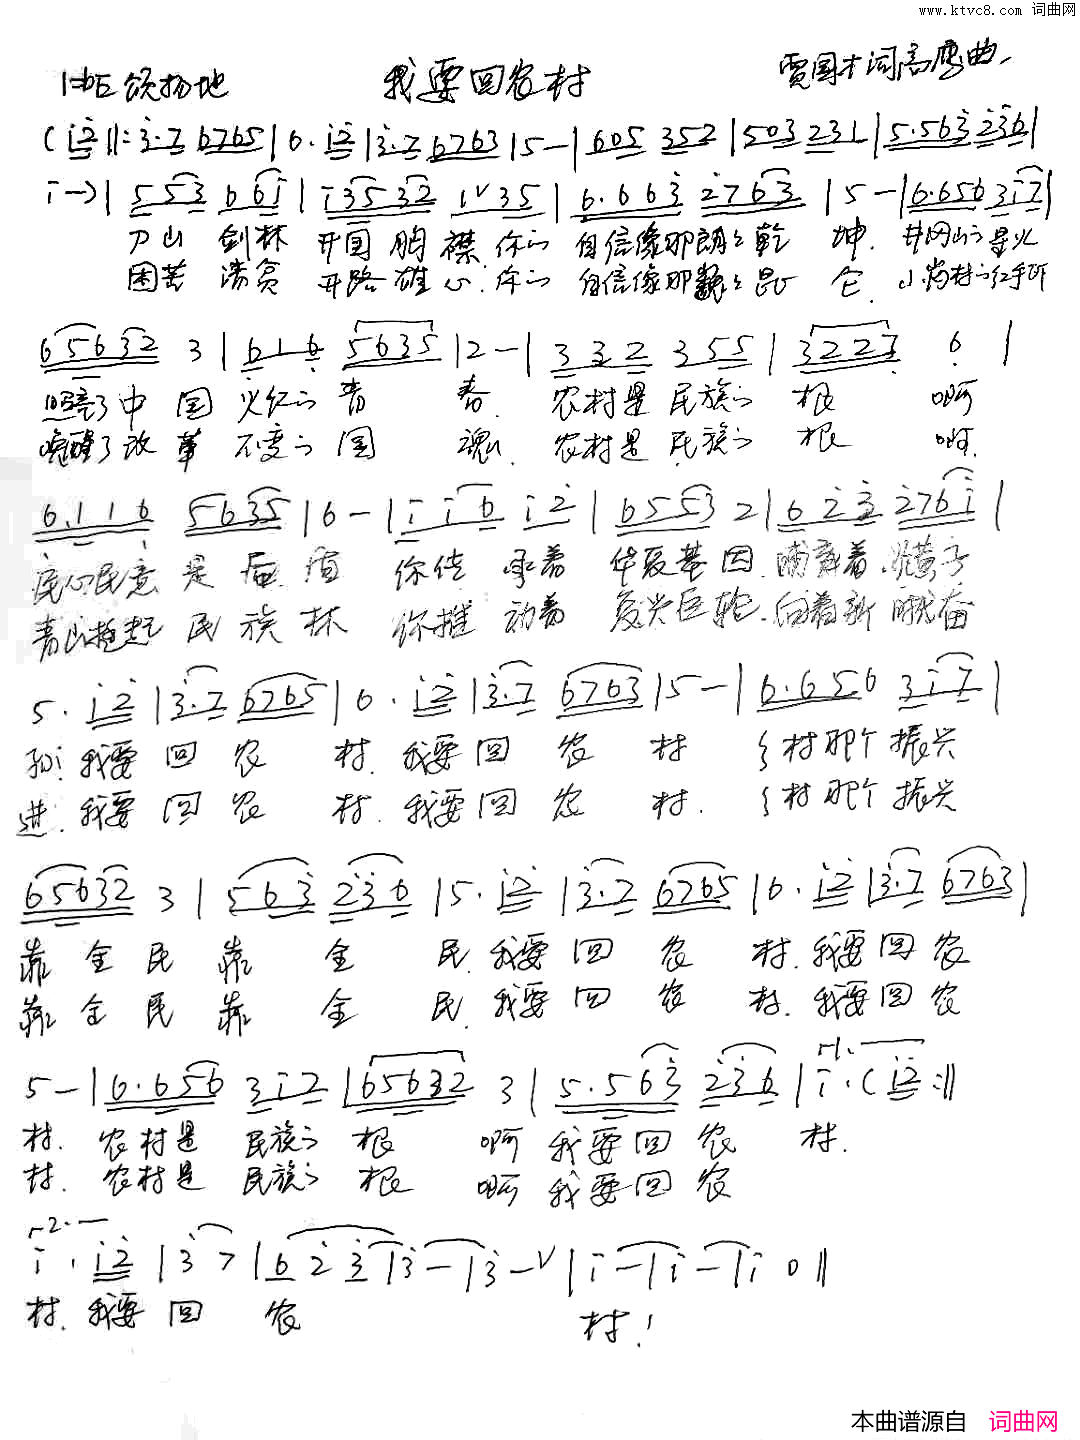 www.ktvc8.com 词曲网
1=bE 颂扬地 我要回农村 贾国才词 高鹰曲
(i2‖:3.7 6765|6.i2|3.7 6763|5—|605 352|503 231|5.563 236|
i—)|553 66i|i3532 1V35|6.663 2763|5—|6.656 3i7|
刀山 剑林 开国 胸襟.你的 自信像那朗朗乾 坤.井冈山的星火
困苦 清贫 开路雄心.你的 自信像那巍巍昆 仑.小岗村的红手印
65632 3|616 5635|2—|332 355|3223 6|
照亮了中国 火红的青 春.农村是民族的 根 啊
唤醒了改革 不变的国 魂.农村是民族的 根 啊.
6.116 5635|6—|ii6 i2|6553 2|623 276i|
民心民意 是后盾 你传承着 华夏基因.哺育着.炎黄子
青山撑起 民族林 你推动着 复兴巨轮.向着新时代奋
5.i2|3.7 6765|6.i2|3.7 6763|5—|6.656 3i7|
孙!我要 回 农 村.我要 回 农 村 乡村那个振兴
进.我要 回 农 村.我要 回 农 村.乡村那个振兴
65632 3|563 236|5.i2|3.7 6765|6.i2|3.7 6763|
靠全民 靠 全 民.我要 回 农 村.我要 回 农
靠全民 靠 全 民.我要 回 农 村.我要 回 农
5—|6.656 3i2|65632 3|5.563 236|i.(i2:‖
村.农村是 民族的 根 啊 我要回农 村.
村.农村是 民族的 根 啊 我要回农
i.i2|37|623|3—|3—V|i—|i—|i0‖
村.我要 回 农 村!
本曲谱源自 词曲网